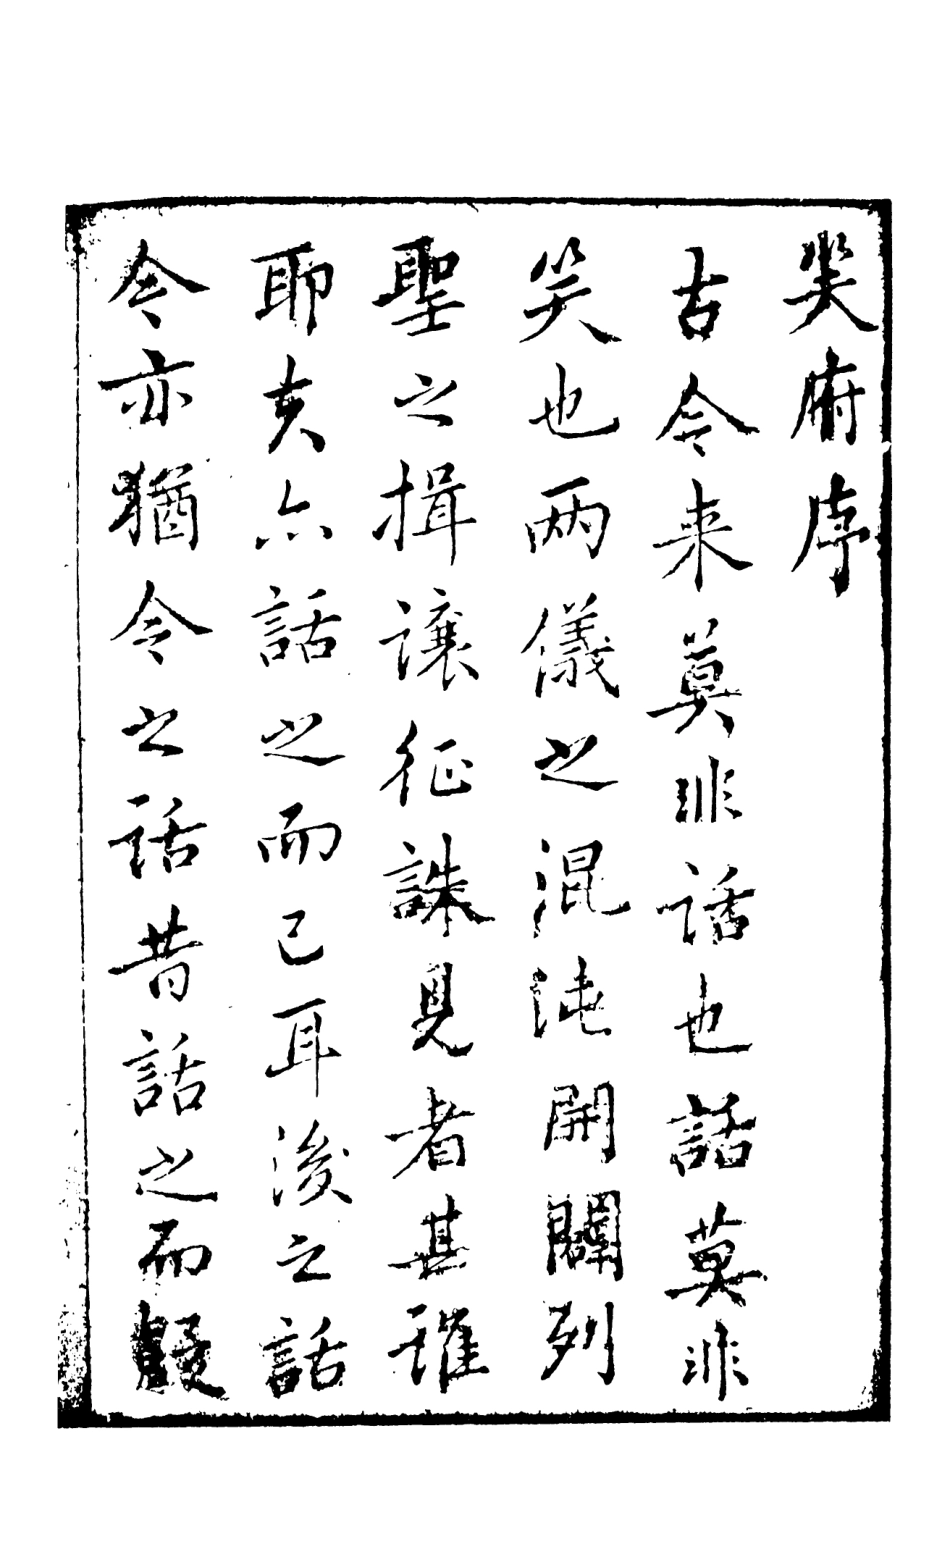 笑府序
古今来莫非話也話莫非
笑也两儀之混沌開闢列
聖之揖譲征誅見者其誰
耶夫亦話之而已耳後之話
今亦猶今之話昔話之而疑